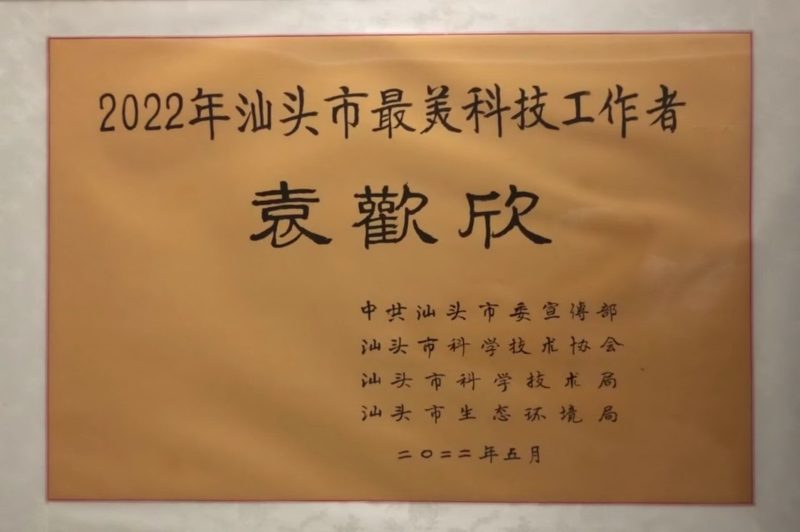 2022年汕头市最美科技工作者
袁歡欣
中共汕头市委宣传部
汕头市科学技术协会
汕头市科学技术局
汕头市生态环境局
二〇二二年五月